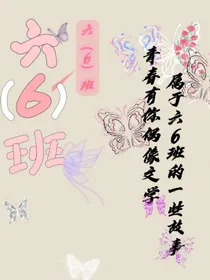 六
(6)
班
六(6)班
属于六6班的一些故事
青春有你偶像之学